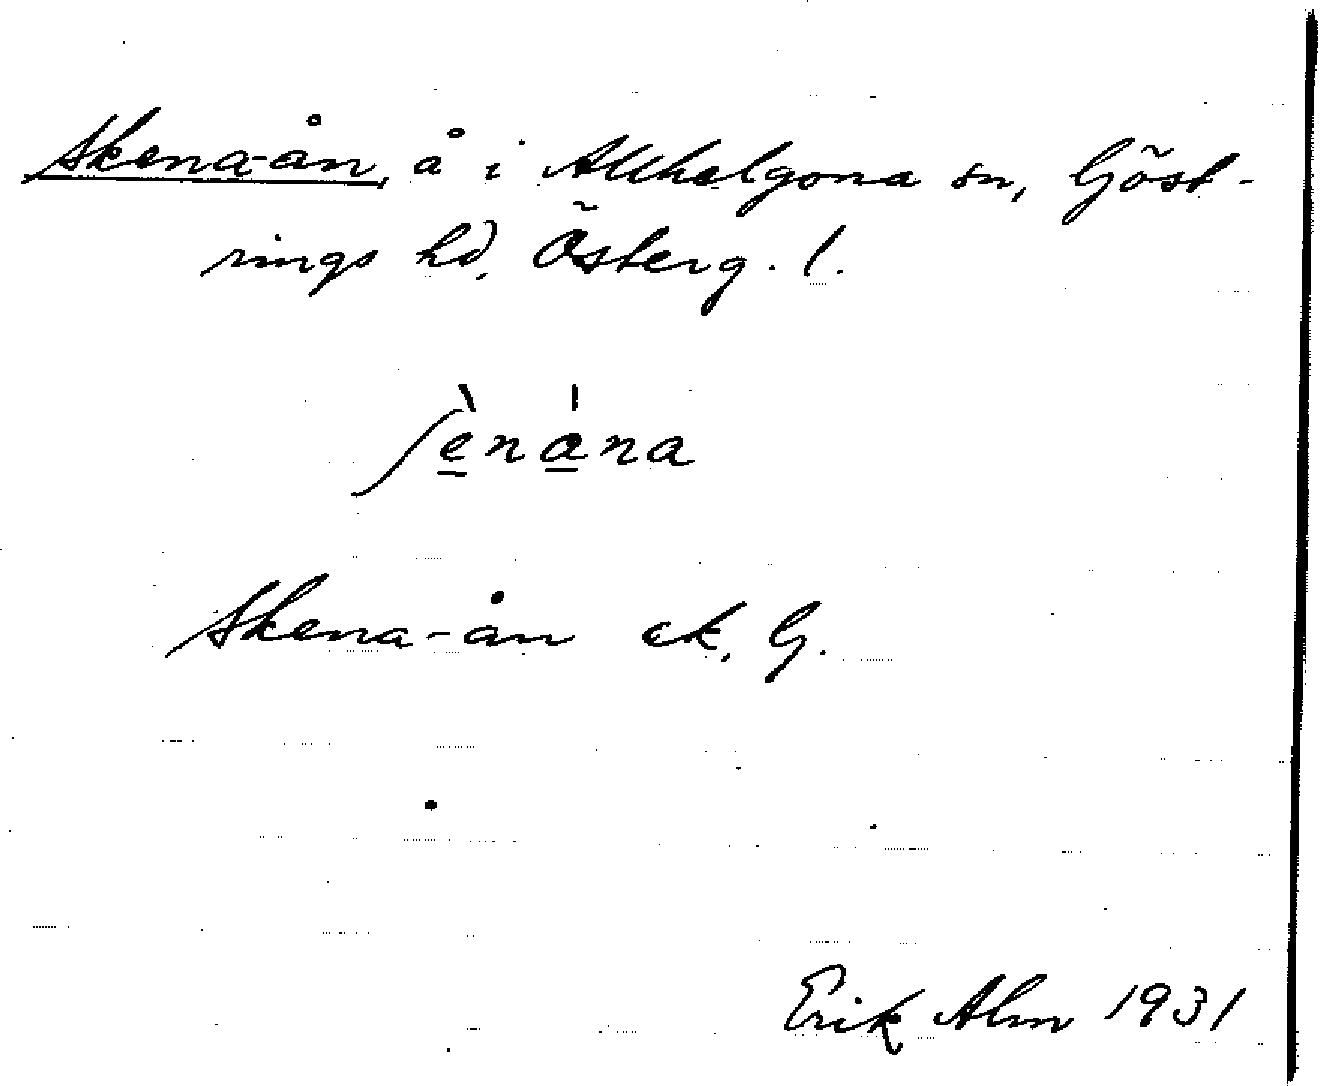 Skena-ån, å i Allhelgona sn, Göst-
rings hd, Österg. l.
ʃènána
Skena-ån ek. G.
Erik Alm 1931